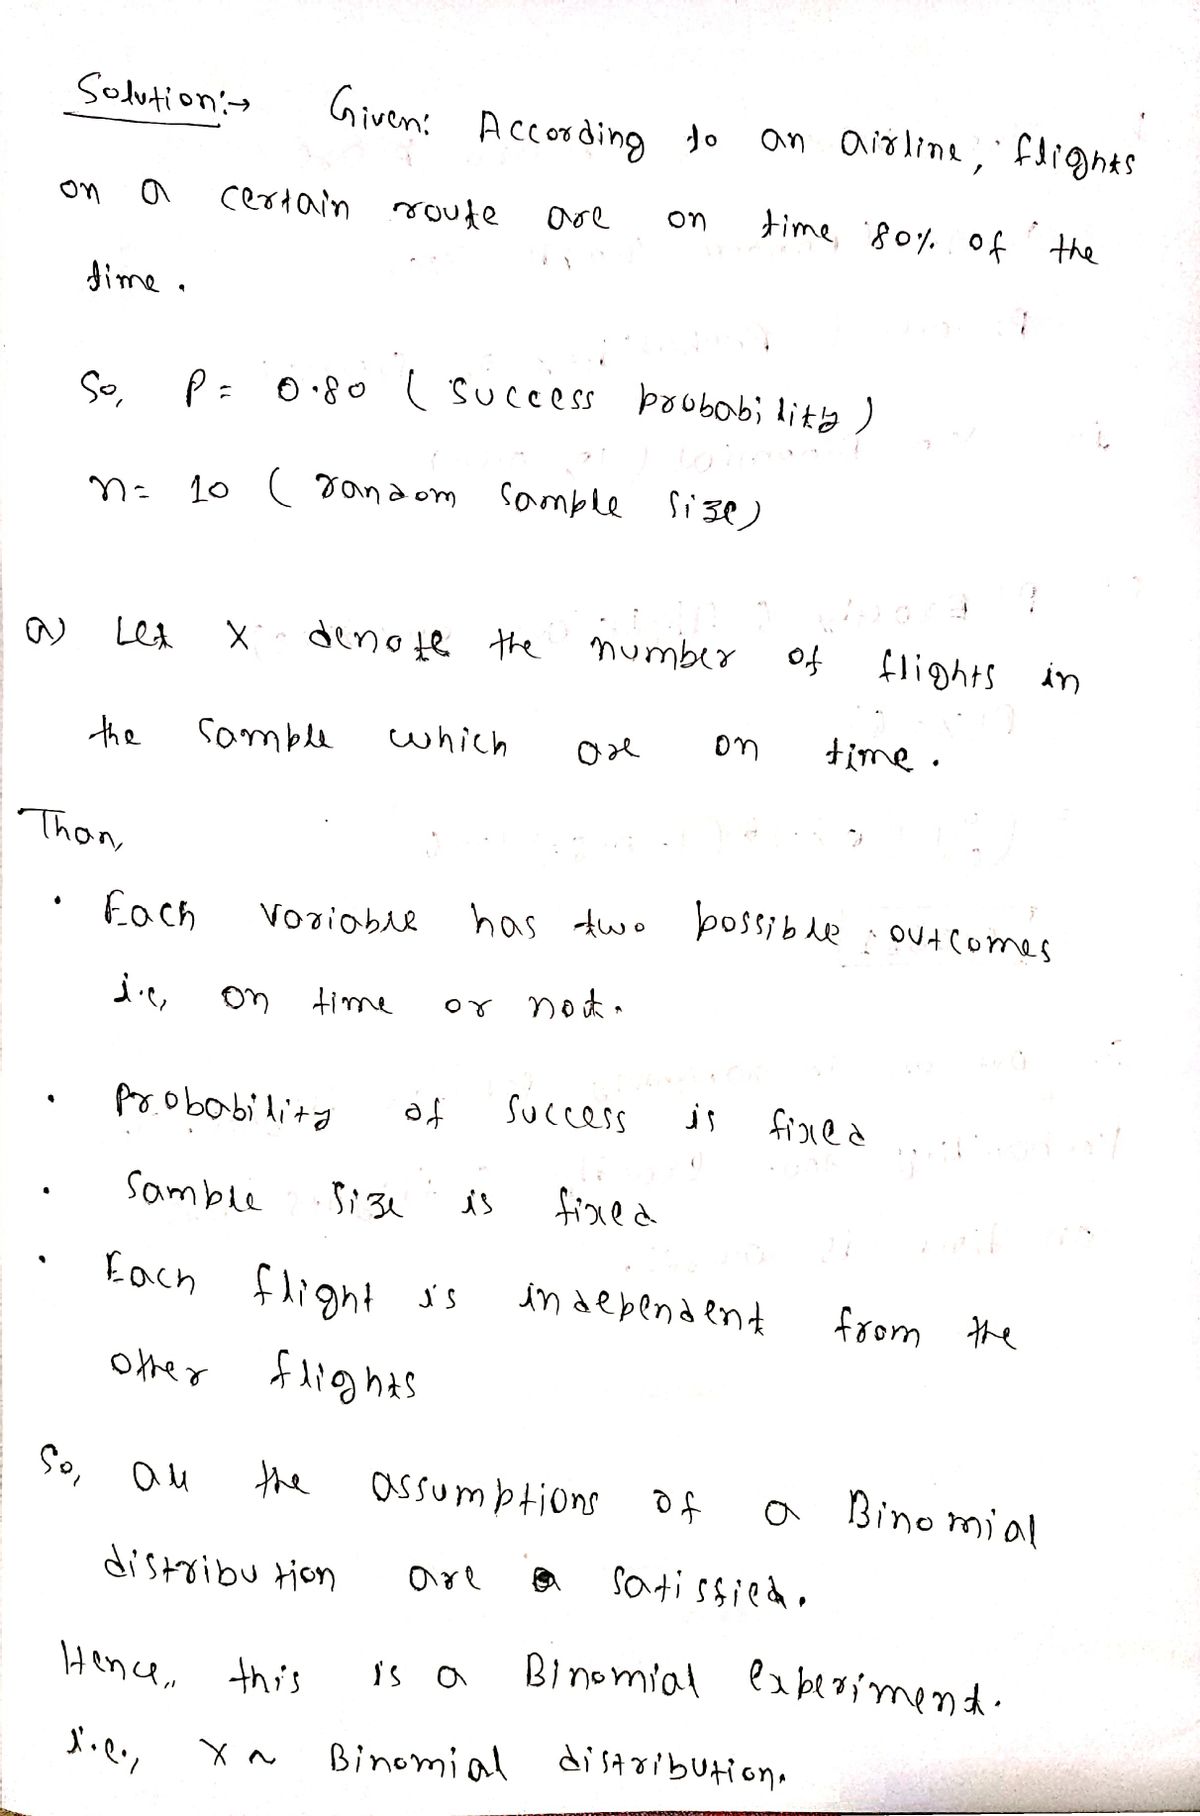 Solution:→ Given: According to an airline, flights
on a certain route are on time 80% of the
time.
So, P = 0.80 ( success probability )
n = 10 ( random sample size)
a) Let X denote the number of flights in
the sample which are on time.
Than,
• Each variable has two possible outcomes
i.e, on time or not.
• Probability of success is fixed
• Sample size is fixed
• Each flight is independent from the
other flights
So, all the assumptions of a Binomial
distribution are satissfied.
Hence,, this is a Binomial experiment.
i.e., X ~ Binomial distribution.